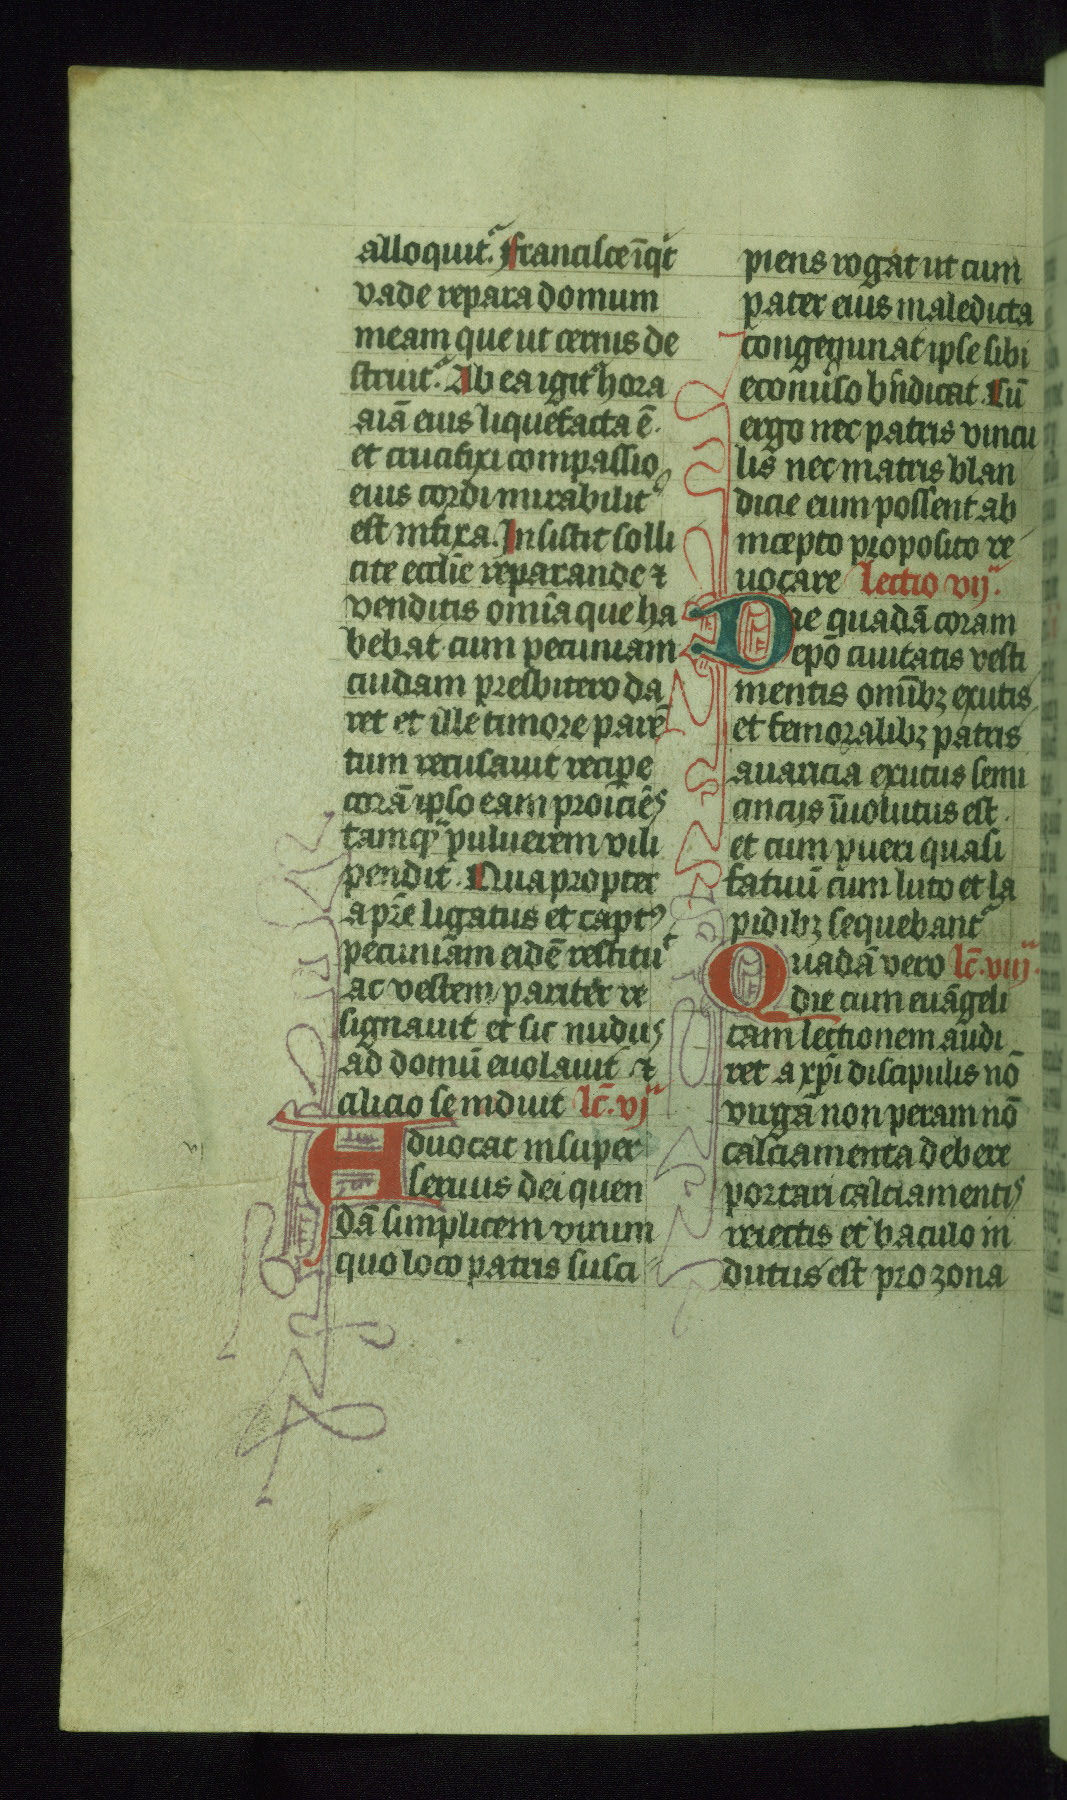 alloquit᷑. francisce īq̇t
vade repara domum
meam que ut cernis de
struit᷑. Ab ea igit᷑ hora
aīa eius liquefacta ē.
et crucifixi compassio
eius cordi mirabilit᷑
est infixa. Insistit solli
cite eccl̄ie reparande ⁊
venditis omīa que ha
bebat cum pecuniam
cuidam presbitero da
ret et ille timore parē
tum recusauit recipe
corā ipso eam proiciēs
tamqͣ puluerem vili
pendit. Qua propter
a pr̄e ligatus et captꝰ
pecuniam eidē restituͭ
ac vestem pariter re
signauit et sic nudus
ad domū euolauit ⁊
cilicio se induit lc̄. vj
Aduocat insuper
seruus dei quen
dā simplicem virum
quo loco patris susci
piens rogat ut cum
pater eius maledicta
congequnat ipse sibi
econuiso bn̄dicat. Cū
ergo nec patris vincu
lis nec matris blan
dicie eum possent ab
incepto proposito re
uocare lectio vij.
Die quadā coram
epō ciuitatis vesti
mentis omībꝫ exutis
et femoralibꝫ patris
auaricia exutus semi
cincijs īuolutus est.
et cum pueri quasi
fatuū cum luto et la
pidibꝫ sequebant᷑
Quadā vero lc̄. viij.
die cum euāgeli
cam lectionem audi
ret a xp̄i discipulis nō
virgā non peram nō
calciamenta debere
portari calciamentis
reiectis et baculo in
dutus est pro zona